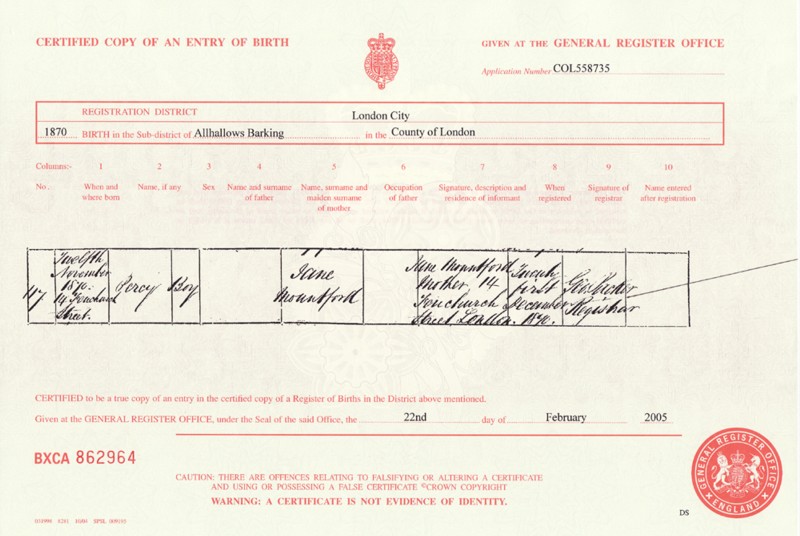 CERTIFIED COPY OF AN ENTRY OF BIRTH
GIVEN AT THE GENERAL REGISTER OFFICE
Application Number COL558735
REGISTRATION DISTRICT London City
1870 BIRTH in the Sub-district of Allhallows Barking in the County of London
Columns:- 1 2 3 4 5 6 7 8 9 10
No. When and where born Name, if any Sex Name and surname of father Name, surname and maiden surname of mother Occupation of father Signature, description and residence of informant When registered Signature of registrar Name entered after registration
47
Twelfth
November
1870
14 Fenchurch
Street.
Percy
Boy
Jane
Mountford
Jane Mountford
Mother, 14
Fenchurch
Street London.
Twenty
first
December
1870.
Registrar
CERTIFIED to be a true copy of an entry in the certified copy of a Register of Births in the District above mentioned.
Given at the GENERAL REGISTER OFFICE, under the Seal of the said Office, the 22nd day of February 2005
BXCA 862964
CAUTION: THERE ARE OFFENCES RELATING TO FALSIFYING OR ALTERING A CERTIFICATE
AND USING OR POSSESSING A FALSE CERTIFICATE ©CROWN COPYRIGHT
WARNING: A CERTIFICATE IS NOT EVIDENCE OF IDENTITY.
GENERAL REGISTER OFFICE
ENGLAND
DS